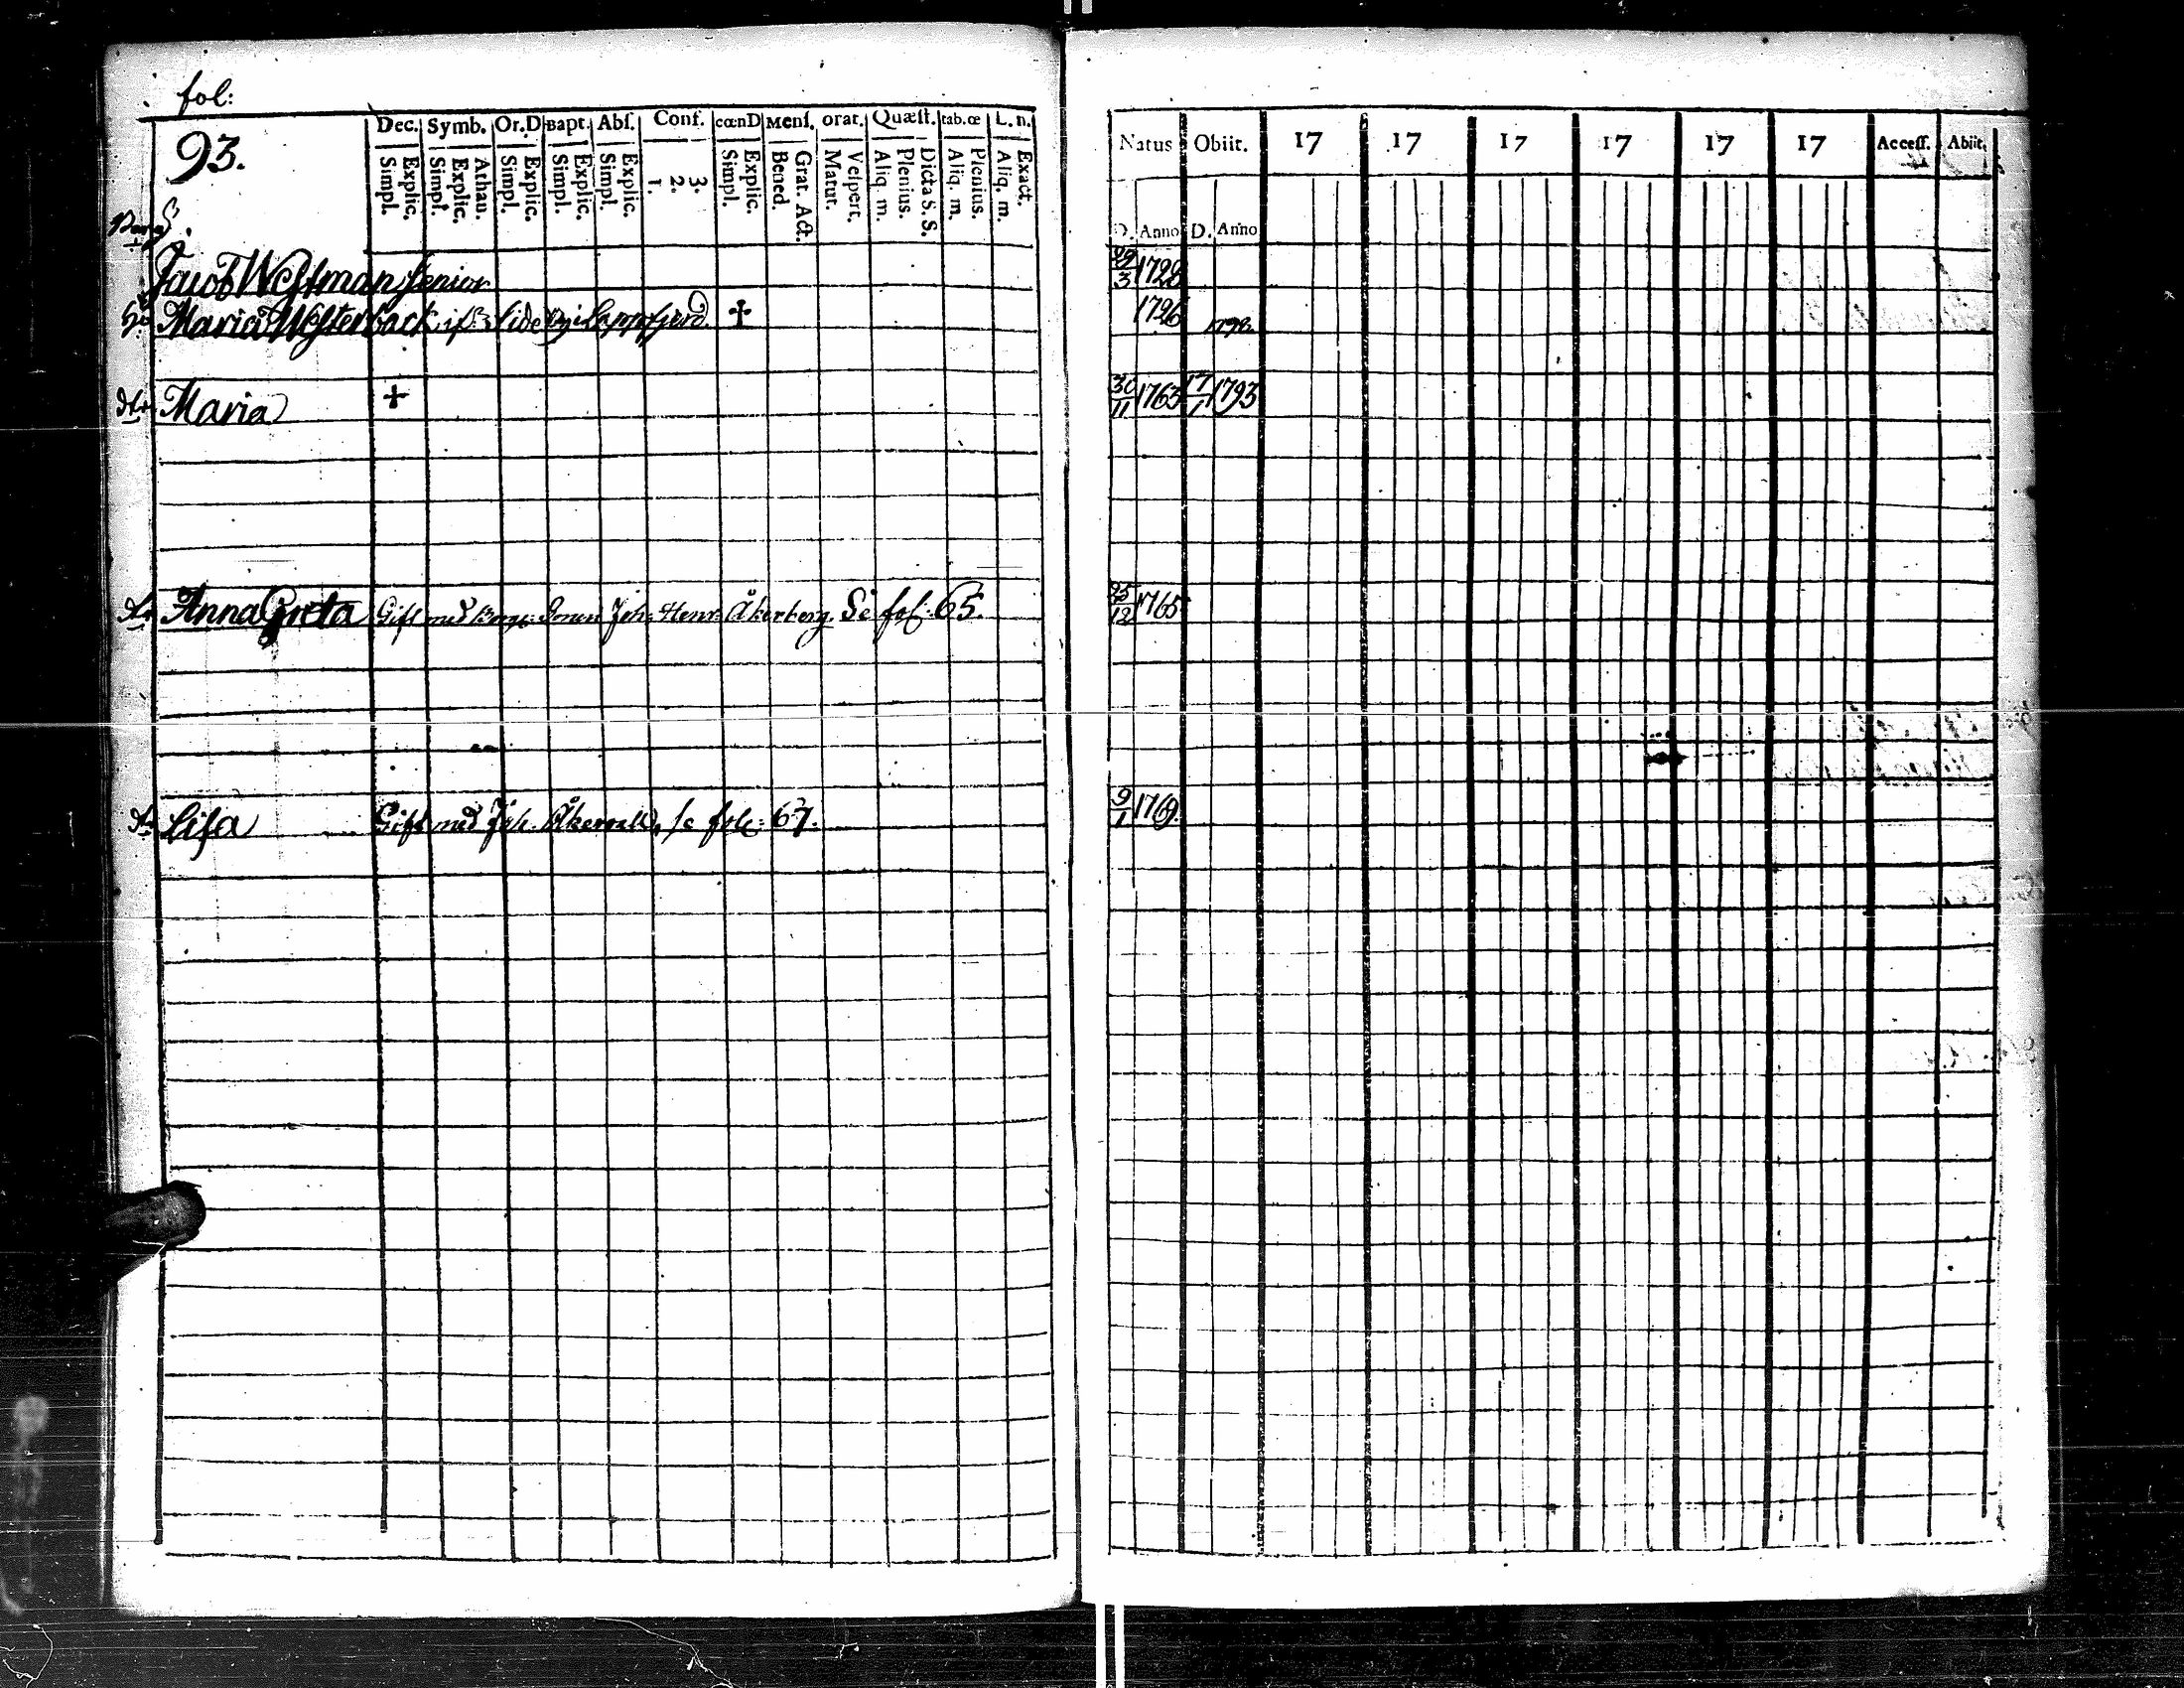 fol:
93.
Dec. Symb. Or.D Bapt. Abſ. Conf. cœnD Menſ. orat. Quæſt. tab.œ L. n.
Simpl. Explic. Simpl. Explic. Athan. Simpl. Explic. Simpl. Explic. Simpl. Explic. 1. 2. 3. Simpl. Explic. Bened. Grat. Act. Matut. Veſpert. Aliq. m. Plenius. Dicta S. S. Aliq. m. Plenius. Aliq. m. Exact.
Natus Obiit. 17 17 17 17 17 17 Acceſſ. Abiit.
D. Anno D. Anno
Jacob Westman Senior 29/3 1728
Maria Westerback if. Lide By i Lappfjerd. + 1726 1798
Maria + 30/11 1763 17/1 1793
Anna Greta Gift med Joh: Henr: Åkerberg. Se fol: 65. 25/12 1765
Lisa Gift med Joh. Åkervall, se fol: 67. 9/1 1769.